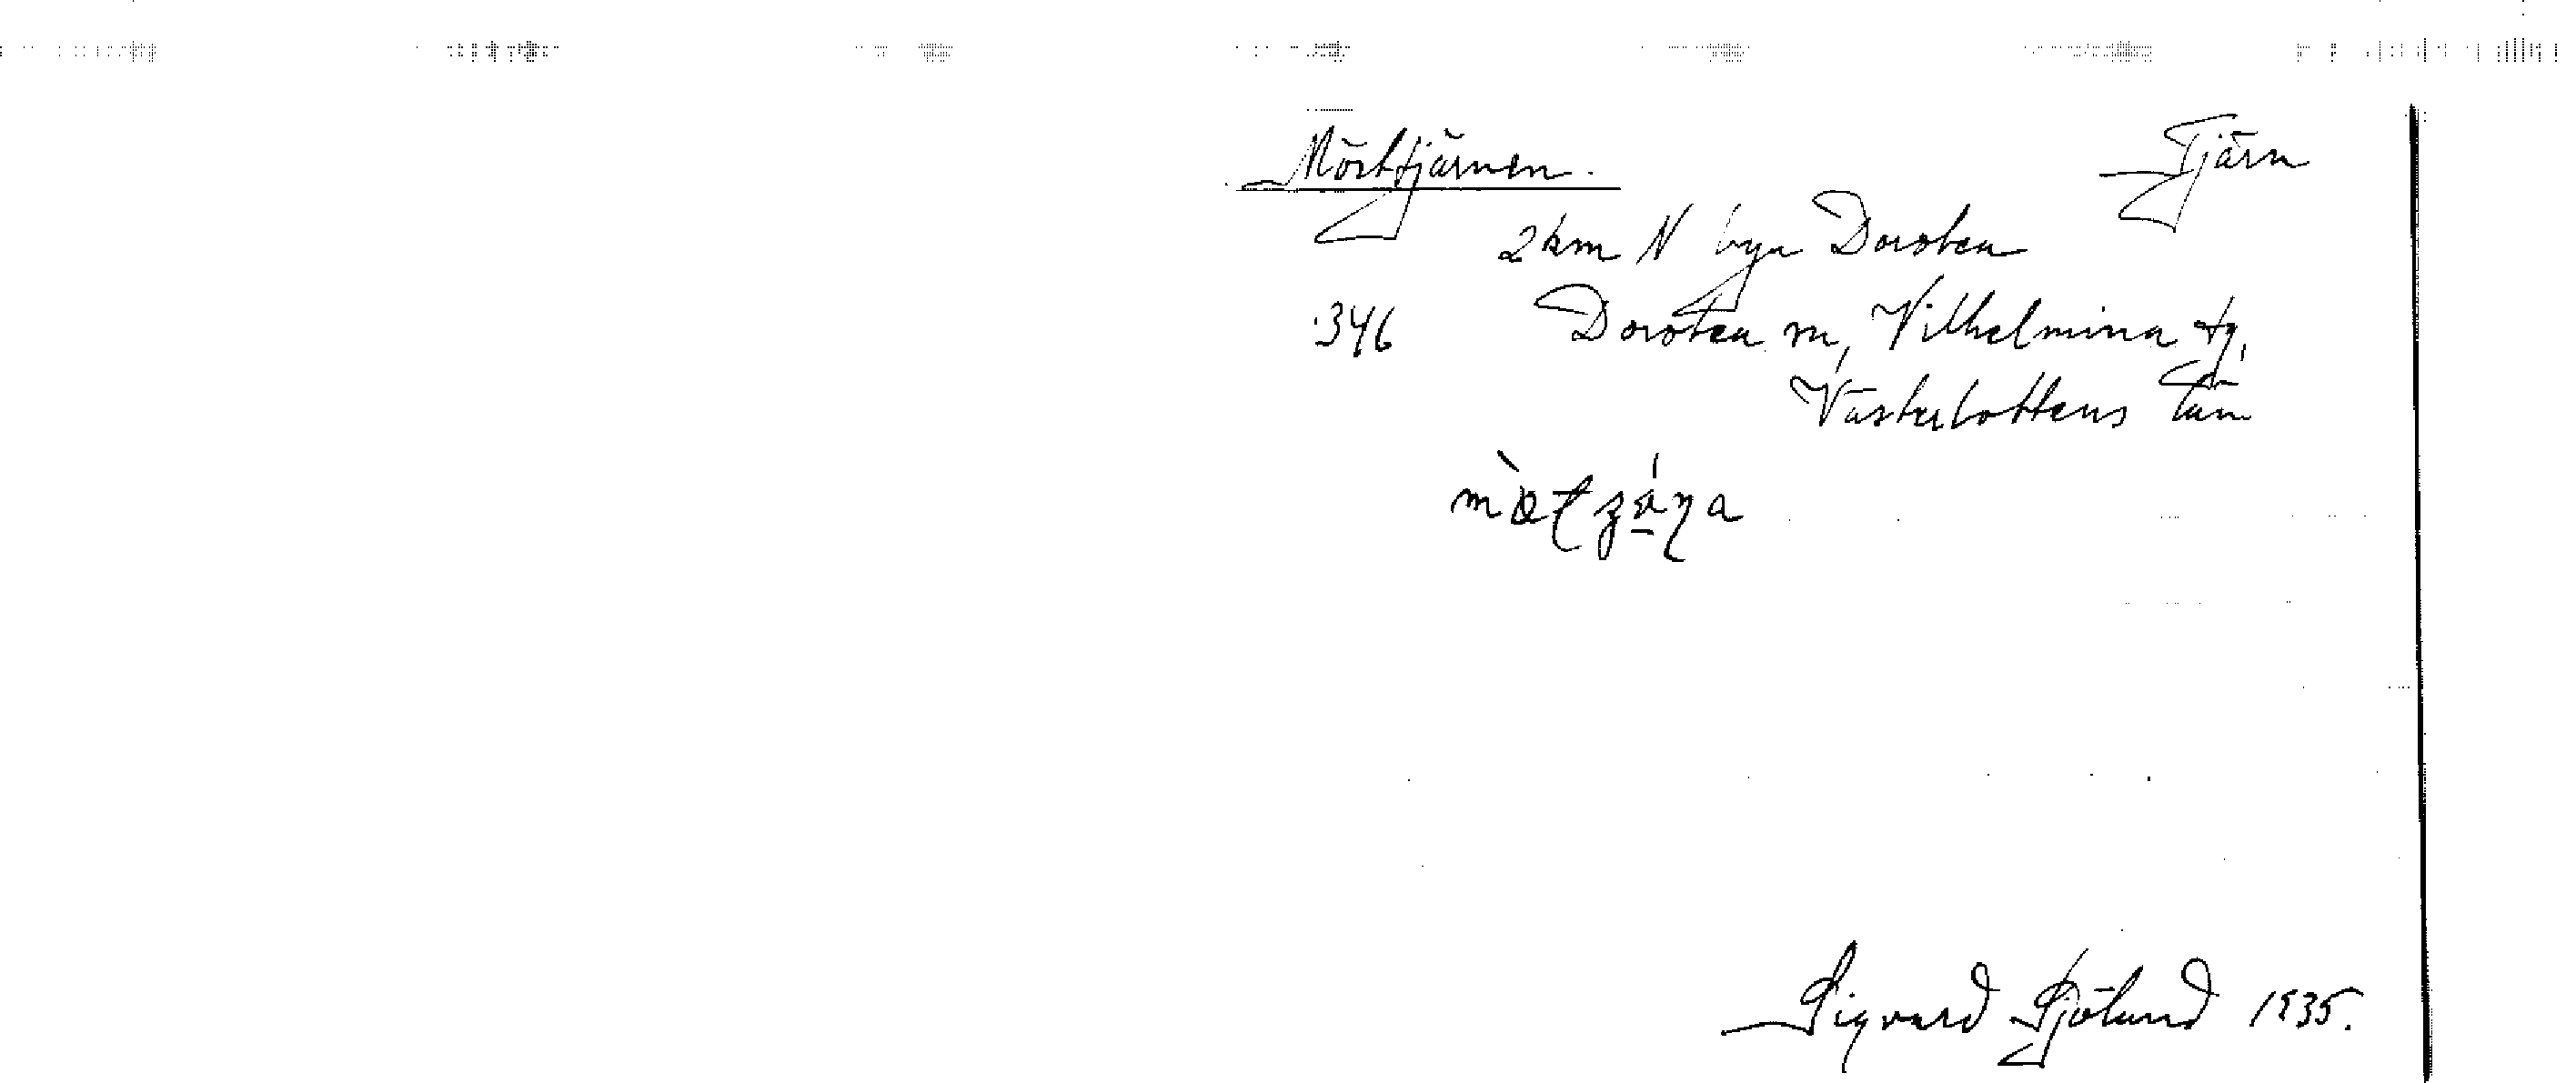 Mörttjärnen. Tjärn
2 km N byn Dorotea
346 Dorotea sn, Vilhelmina tg,
Västerbottens län
Sigvard Sjölund 1935.